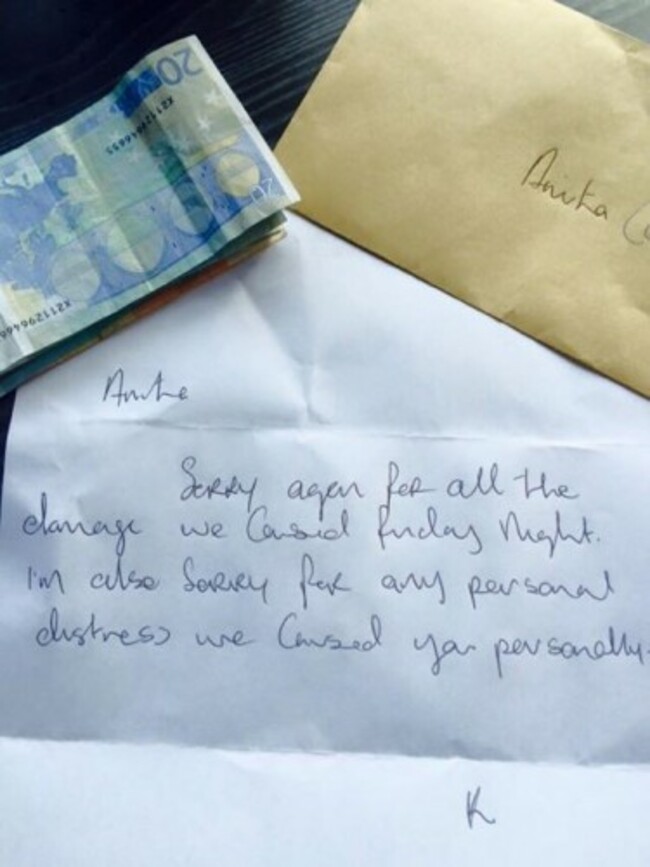 20
20
Anika
Anika
Sorry again for all the
damage we caused friday Night.
I'm also Sorry for any personal
distress we caused you personally.
K